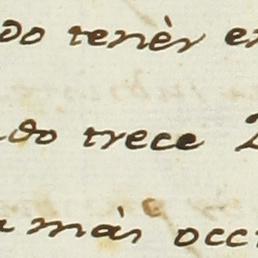 do tenèr e
do trece 2
a màs occ